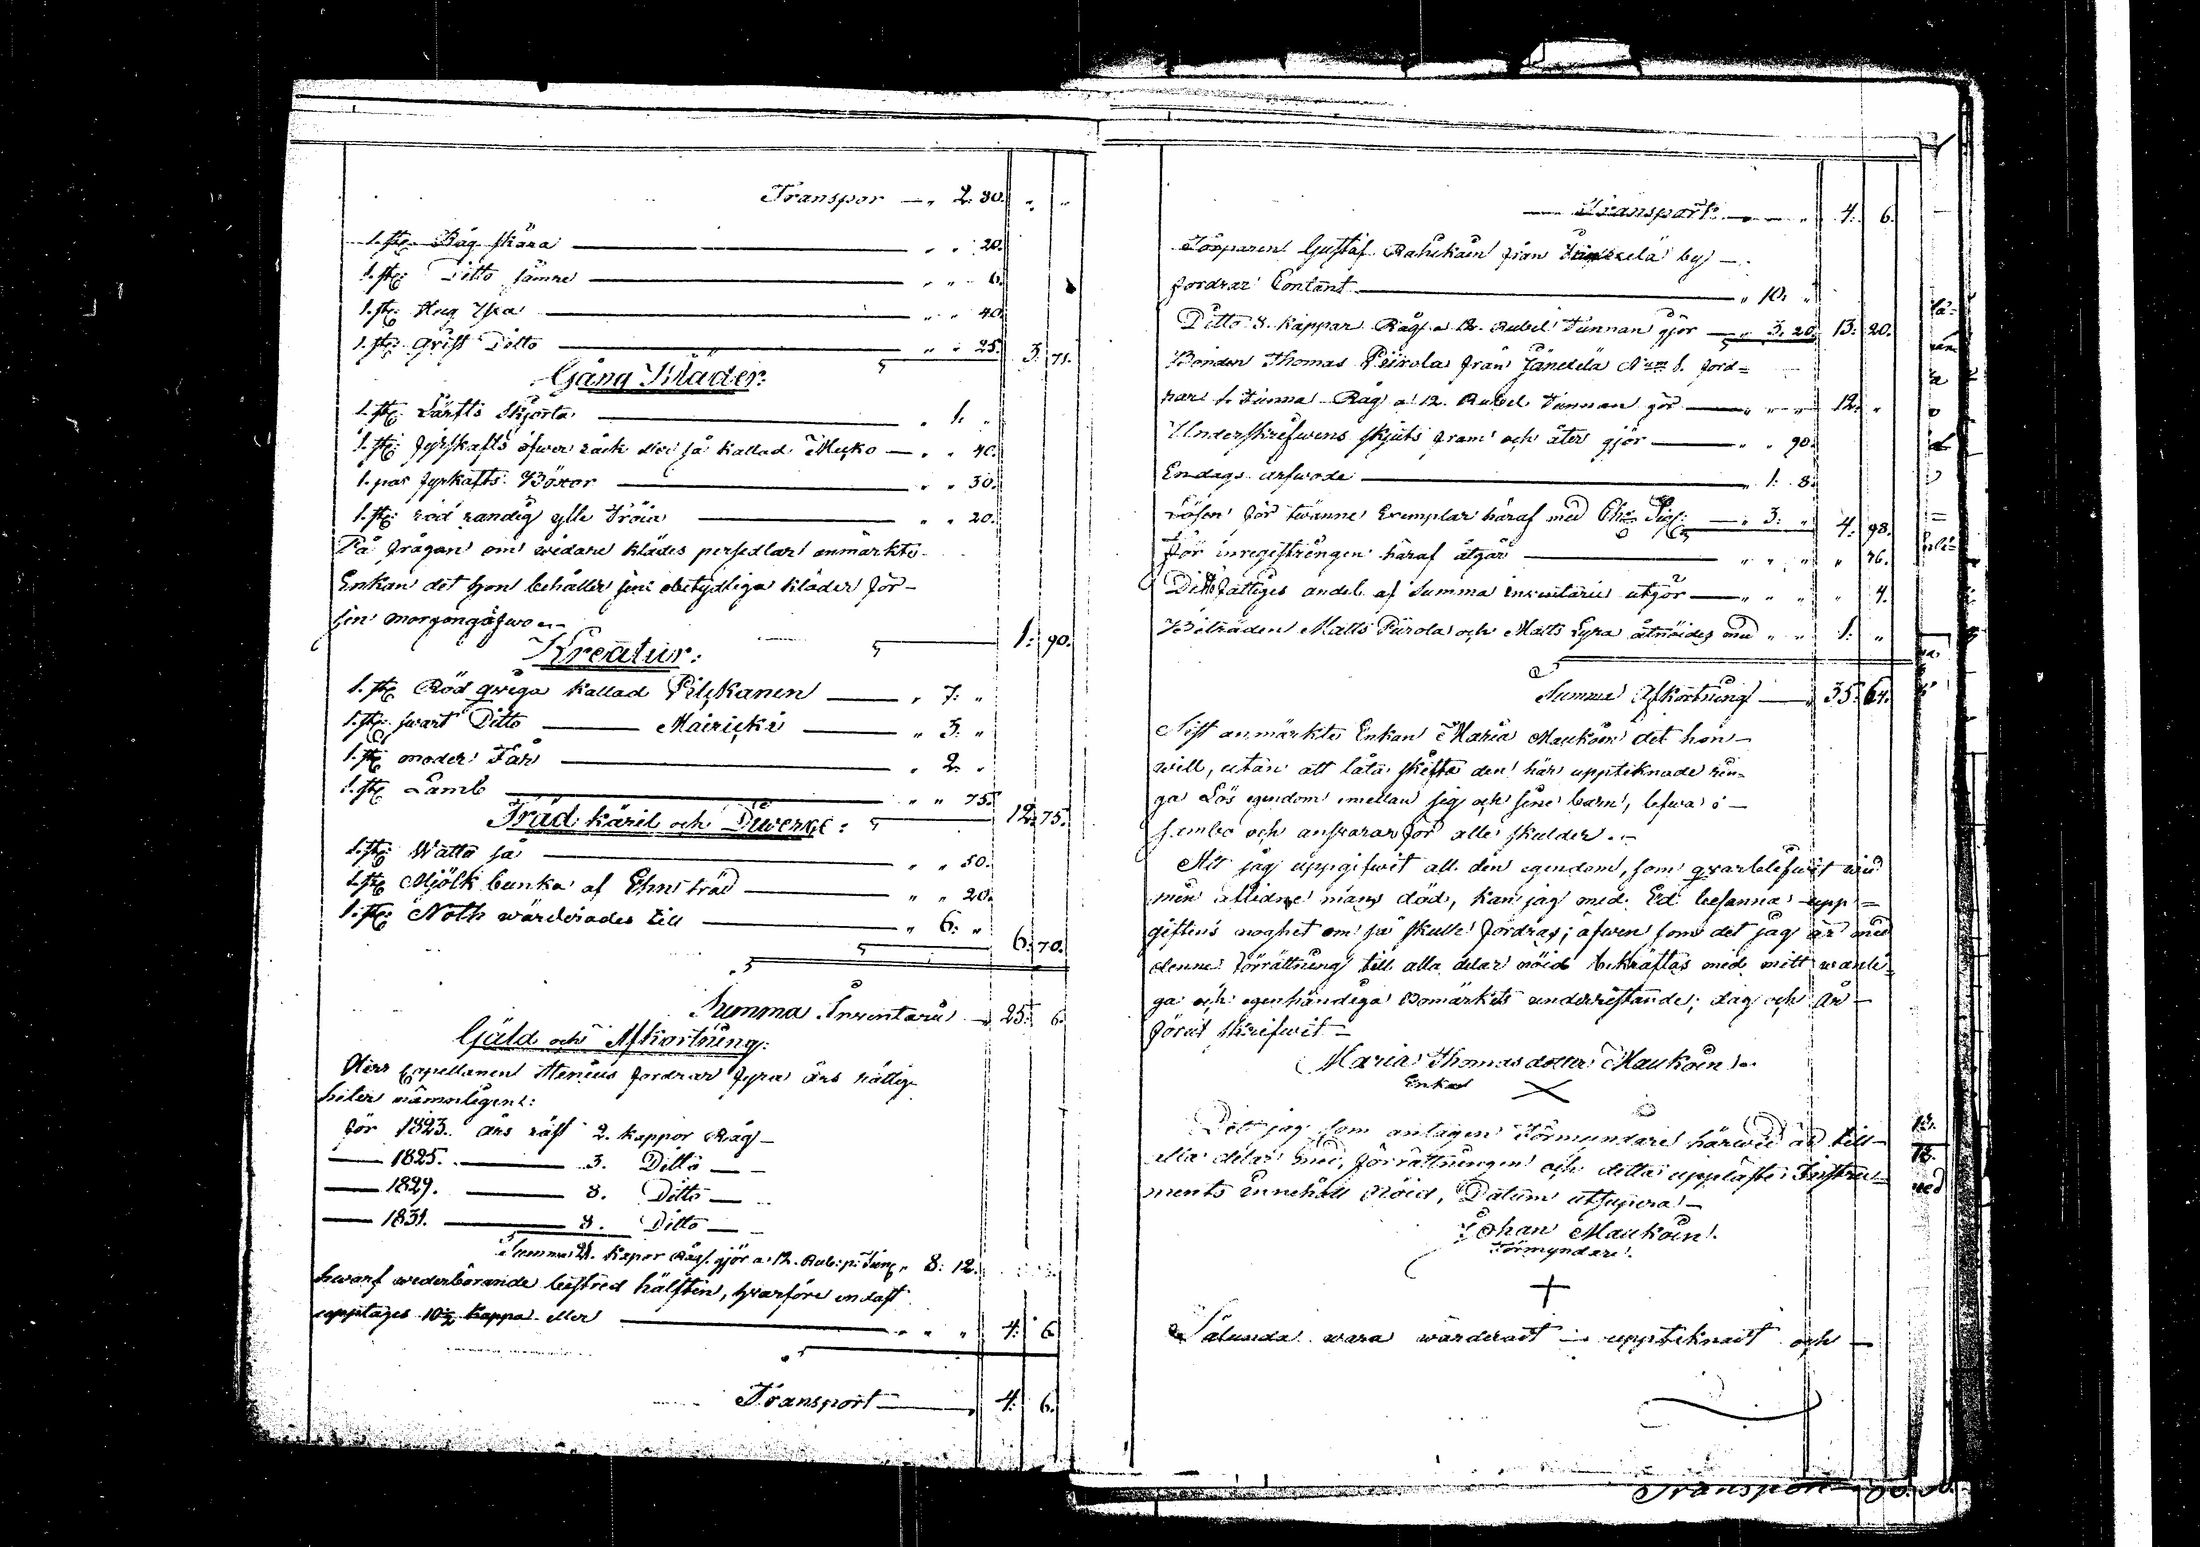 Transpor — „ 2. 80. „ „
1. st: Råg skära — „ „ 20.
1. st: Ditto sämre — „ „ 6.
1. st: Hug Yxa — „ „ 40.
1. st: Ditto — „ „ 25. 3. 71.
Gång Kläder:
1. st: Lärfts Skjorta — „ 1. „
1. st: fyrskafts öfwer råck eller så kallad Mecko — „ „ 40.
1. par fyrskafts Böxor — „ „ 30.
1. st: röd randig ylle Tröia — „ „ 20.
På frågan om widare klädes persedlar anmärkte
Enkan det hon behåller sine obetydliga kläder för
sin morgongåfwo — 1. 90.
Kreatur:
1. st: Röd qwiga kallad Pilckanen — „ 7. „
1. st: swart Ditto — Mairicki — „ 3. „
1. st: moder Får — „ 2. „
1. st: Lamb — „ „ 75. 12. 75.
Träd käril och Diwerse:
1. st: Wattu så — „ „ 50.
1. st: Mjölk bunka af Ehnträd — „ „ 20.
1. st: Noth wärderades till — „ 6. „
6. 70.
Summa Inventarii — 25. 6.
Gäld och Afkortning:
Herr Capellanen Stenius fordrar fyra års rättig
heter nämnligen:
för 1823. års räst 2. kappor Råg —
— 1825. — 3. Ditto —
— 1829. — 8. Ditto —
— 1831. — 8. Ditto —
Summa 21. Kapor Råg. gjör a 12. Rub: pr Tunn „ 8. 12.
hwaraf wederbörande bestred hälften, hwarföre endast
upptages 10½ kappa eller — „ „ „ 4. 6.
Transport — 4. 6.
Transport — „ 4. 6.
Torparen Gustaf från by —
fordrar Contant — „ 10. „
Ditto 8. kappar Råg a 12. Rubel Tunnan gjör — „ 3. 20. 13. 20.
Bonden Thomas Piirola från Jänedelä Num 8. ford=
rar 1. Tunna Råg a 12. Rubel Tunnan gör — „ „ „ 12. „
Underskrefwens skjuts fram och åter gjör — „ „ 90.
Endags arfwode — „ 1. 8.
Lösen för twänne Exemplar häraf med — „ 3. „ 4. 98.
För inregistringen häraf åtgår — „ „ „ „ 36.
Ditto fattiges andel af Summa inventarii utgör — „ „ „ „ 4.
Biträden Matts Piirola och Matts Lyra åtnöides med „ „ 1. „
Summa Afkortning — 35. 64.
Sist anmärkte Enkan Maria Maukoin det hon —
will, utan att låta skifta den här upptiknade rin=
ga Lös egendom emellan sig och sine barn, lefwa i —
sambo och answarar för alle skulder. —
Att jag uppgifwit all den egendom, som qwarblefwit wid
min aflidne mans död, kan jag med Ed besanna upp=
giftens noghet om så skulle fordras; äfwen som det jag är med
denne förrättning till alla delar nöid bekräftas med mitt wanli=
ga och egenhändiga Bomärkets underristande, dag och år —
förut skrifwit —
Maria Thomasdotter Maukoin.
Enka
Det jag som antagen Förmundare härwid är till
alla delar med förrättningen och detta uppläste Instru=
ments innehåll nöid, Datum utsupra —
Johan Maukoin.
Förmyndare.
Sålunda wara wärderadt — upptiknadt och —
Transport